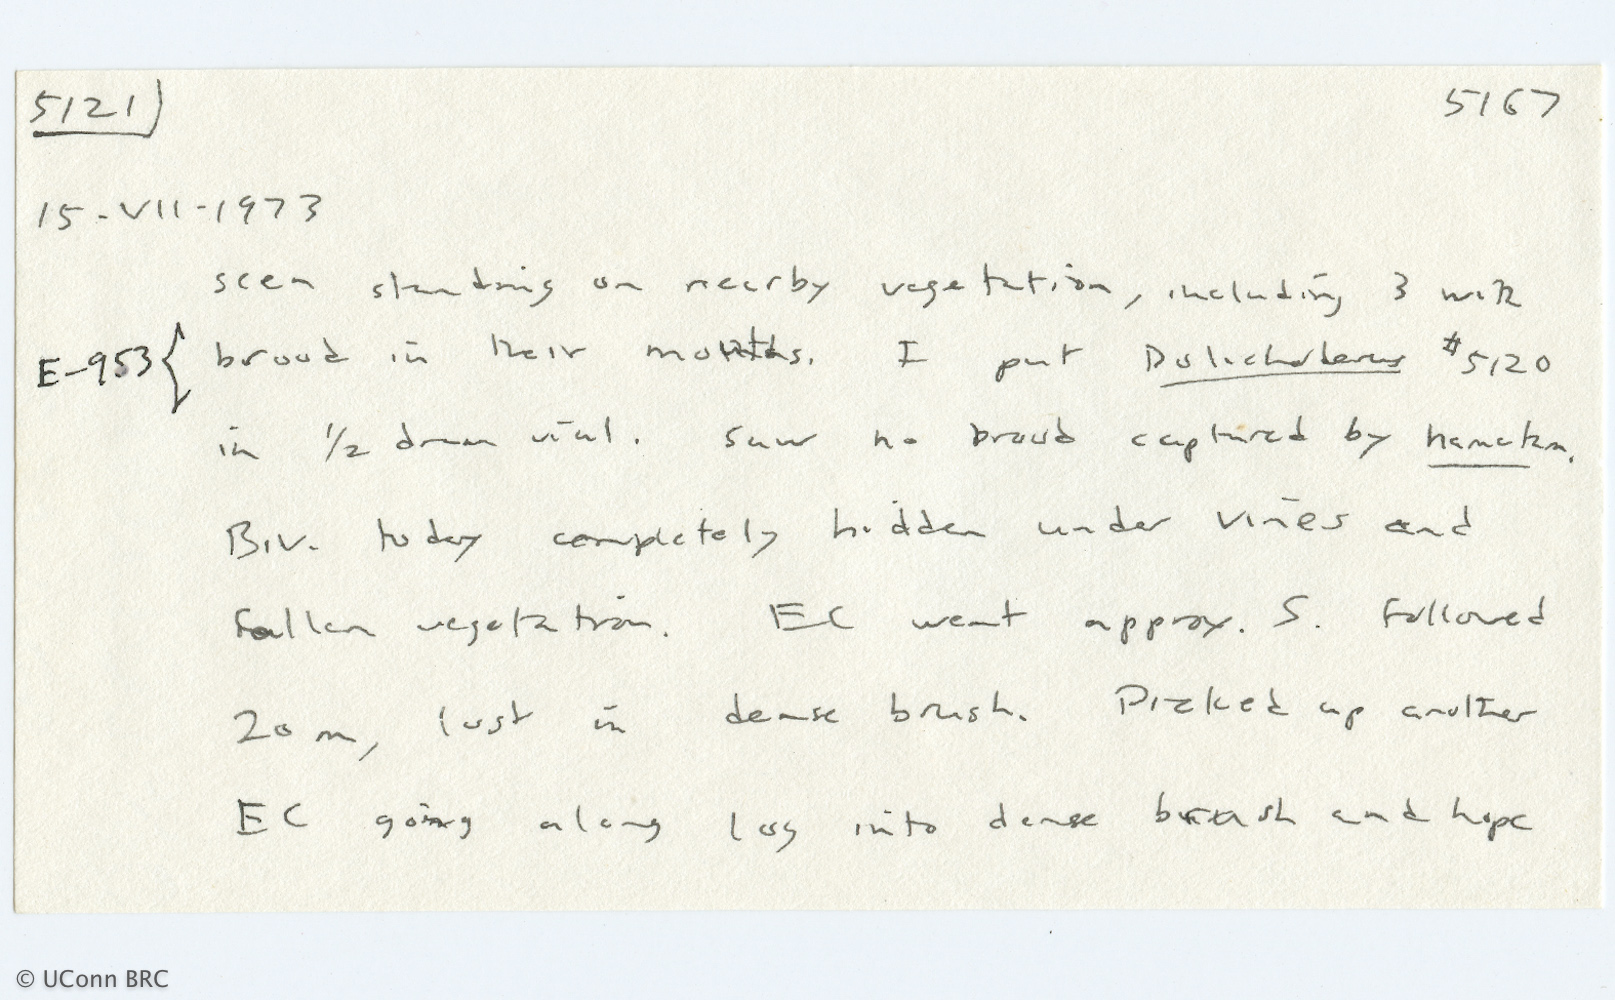 5121) 5167
15-VII-1973
seen standing on nearby vegetation, including 3 with
E-953 { brood in their mouths. I put Dolichoderus #5120
in 1/2 dram vial. Saw no brood captured by hamatum.
Biv. today completely hidden under vines and
fallen vegetation. EC went approx. S. Followed
20 m, lost in dense brush. Picked up another
EC going along log into dense brush and hope
© UConn BRC